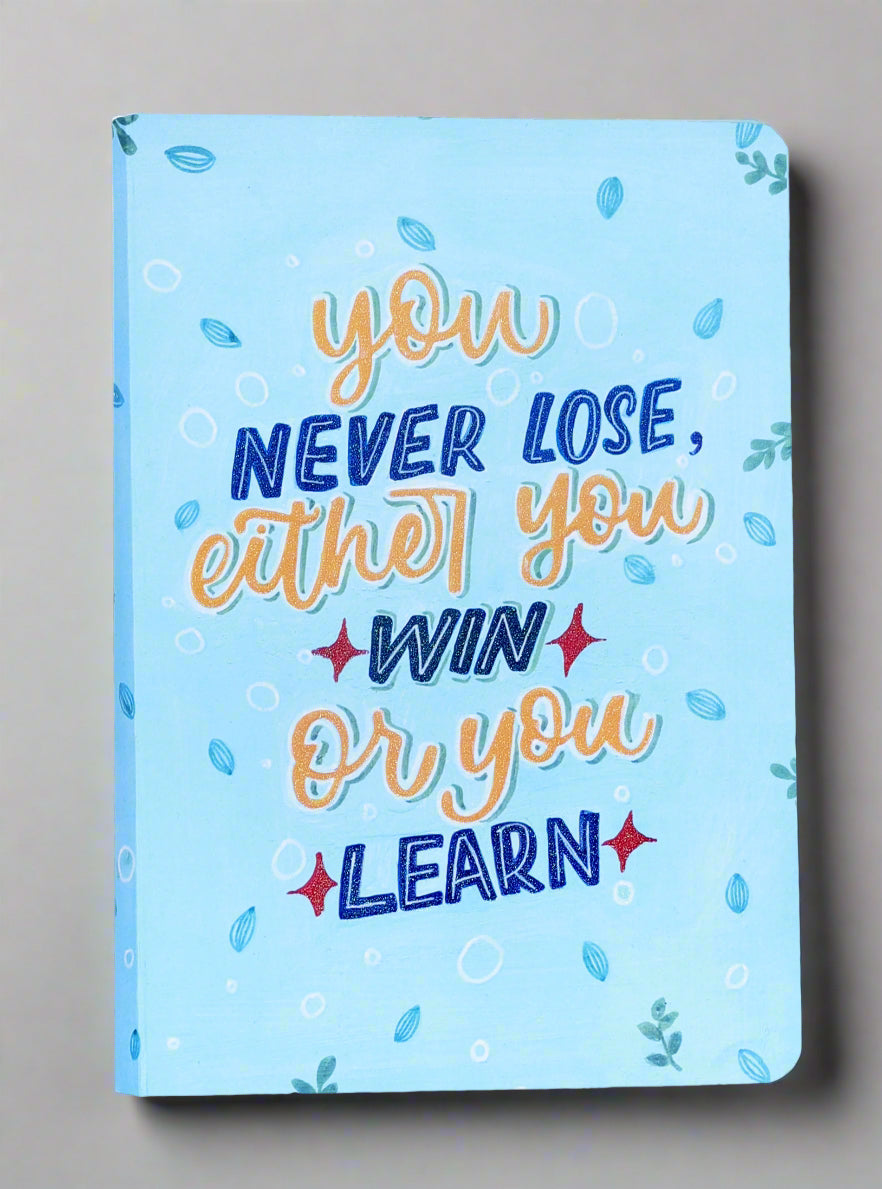 you
NEVER LOSE,
either you
WIN
Or you
LEARN